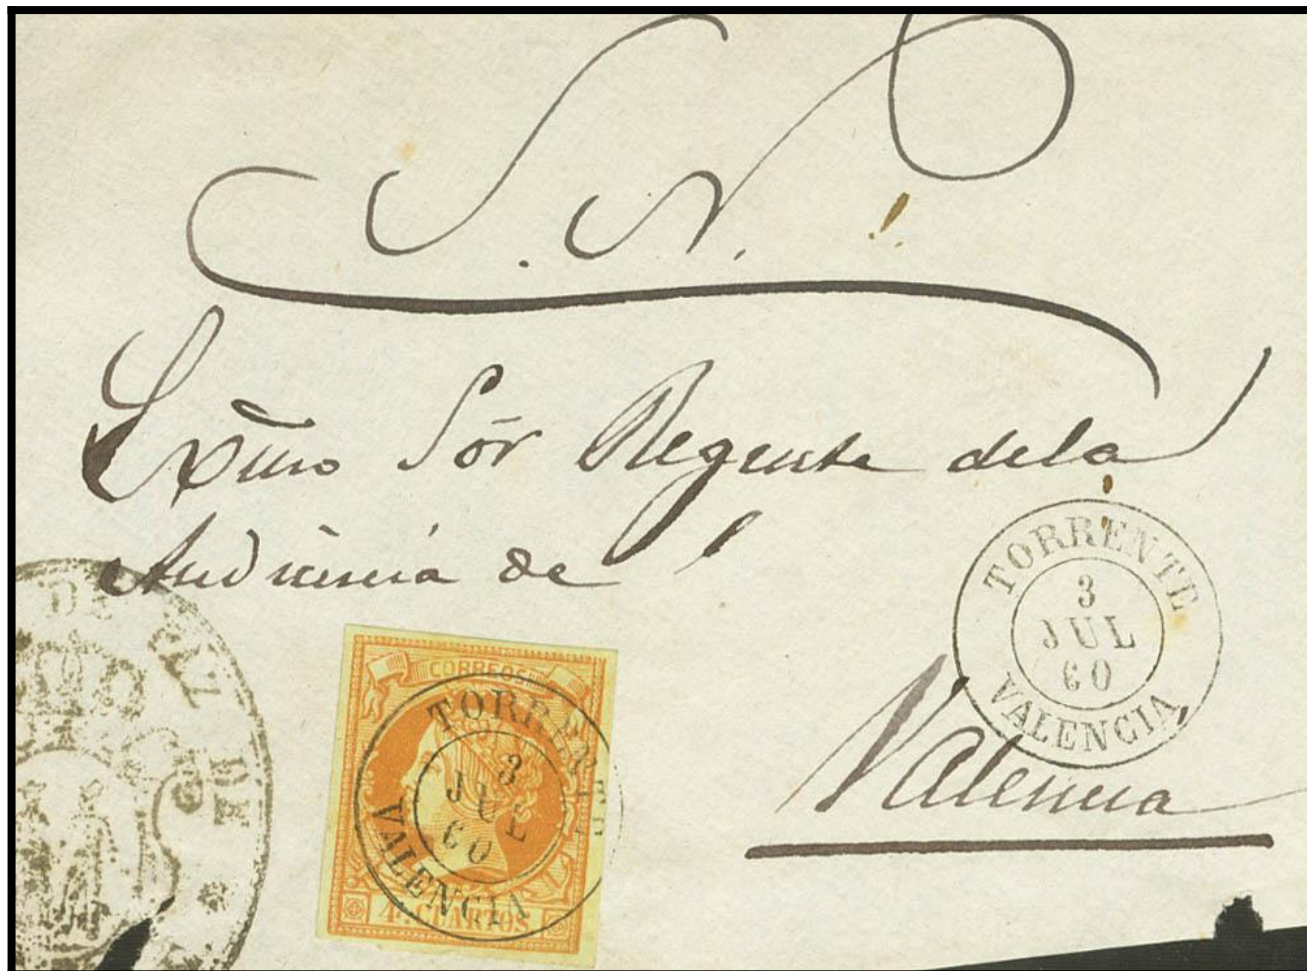 S. N.
Exmo Sor Regente dela
Audiencia de
Valencia
TORRENTE
3
JUL
60
VALENCIA
CORREOS
TORRENTE
3
JUL
60
VALENCIA
4 CUARTOS
DE